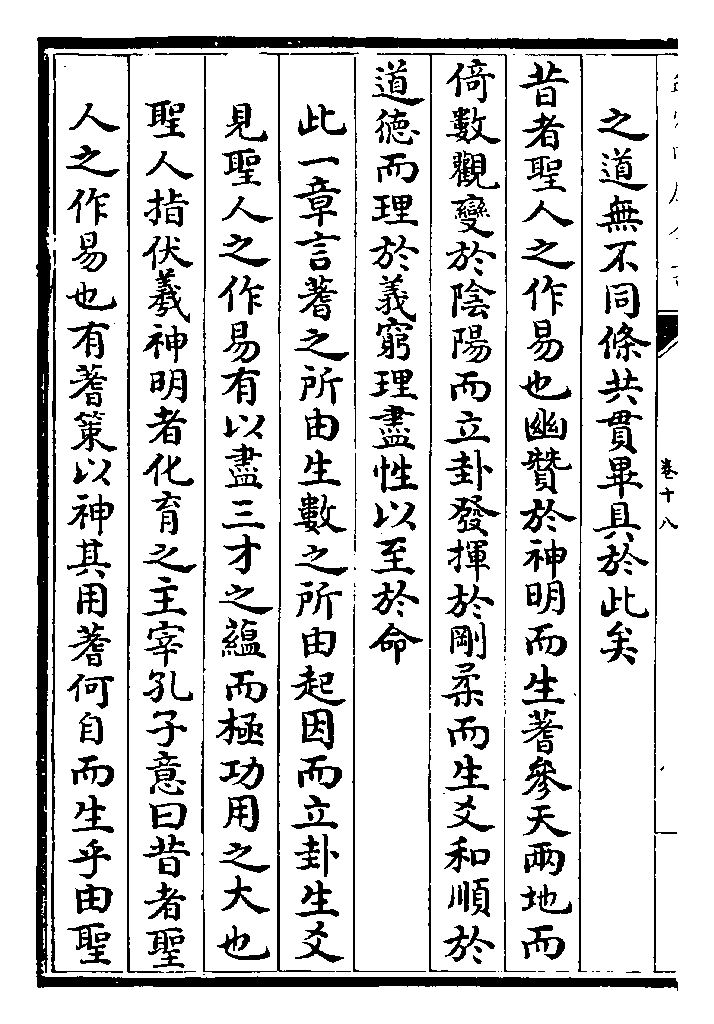 之道無不同條共貫畢具於此矣
昔者聖人之作易也幽贊於神明而生蓍參天兩地而
倚數觀變於陰陽而立卦發揮於剛柔而生爻和順於
道德而理於義窮理盡性以至於命
此一章言蓍之所由生數之所由起因而立卦生爻
見聖人之作易有以盡三才之藴而極功用之大也
聖人指伏羲神明者化育之主宰孔子意曰昔者聖
人之作易也有蓍策以神其用蓍何自而生乎由聖
卷十八